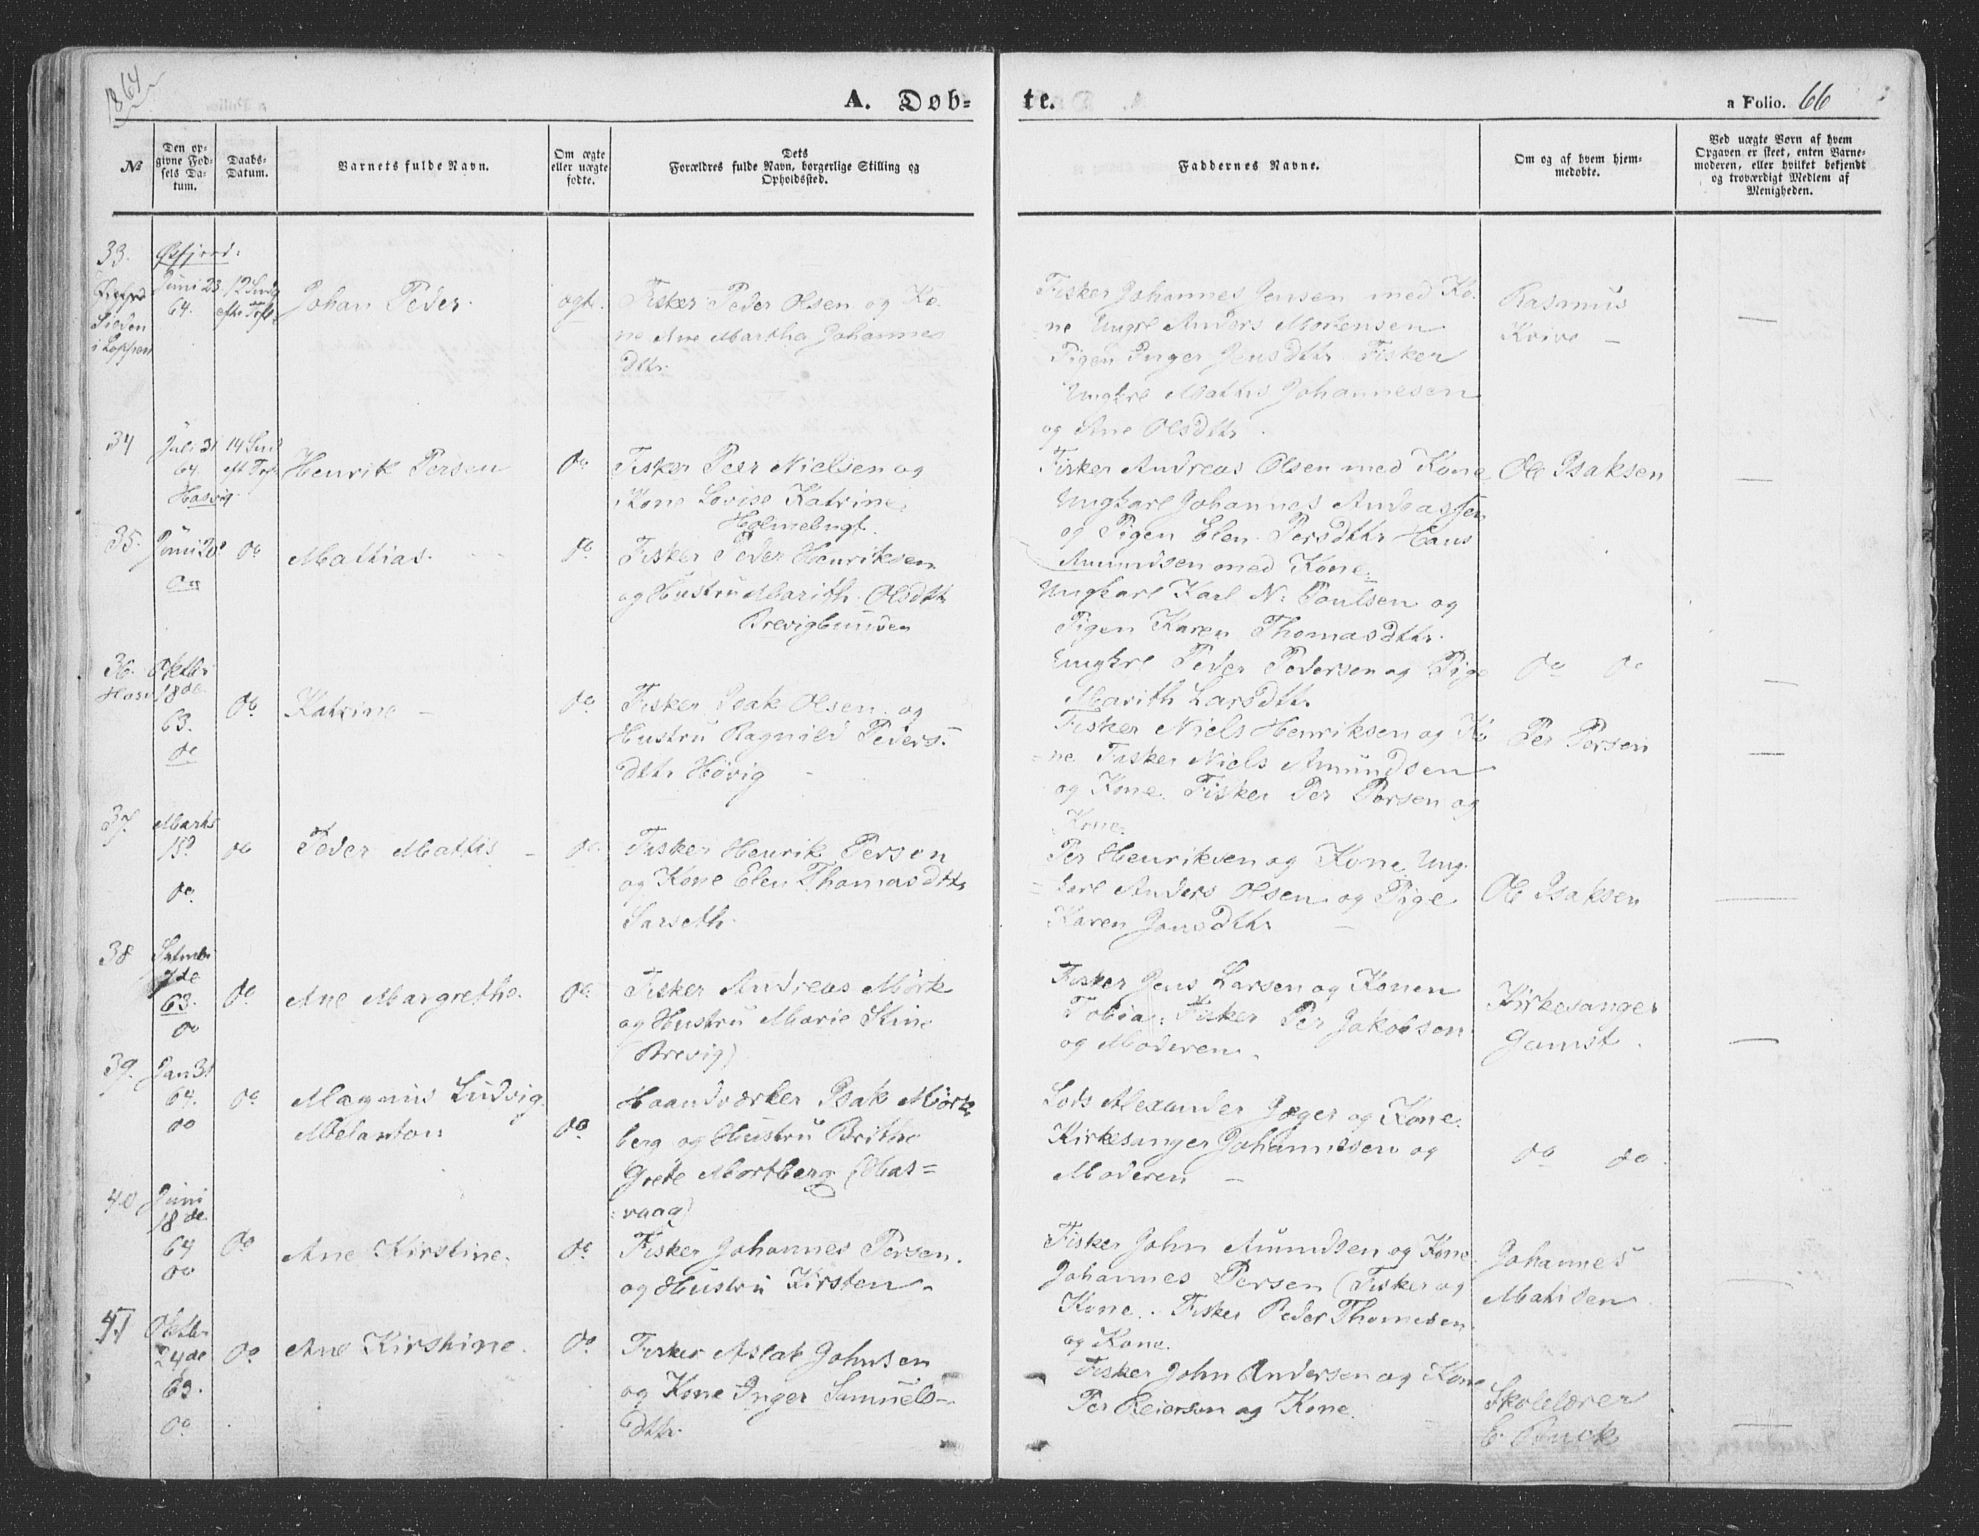 1864
A. Døb-
te.
a Folio. 66
№
Den op-
givne Fød-
sels Da-
tum.
Daabs-
Datum.
Barnets fulde Navn.
Om ægte
eller uægte
fødte.
Dets
Forældres fulde Navn, borgerlige Stilling og
Opholdssted.
Faddernes Navne.
Om og af hvem hjem-
medøbte.
Ved uægte Børn af hvem
Opgaven er skeet, enten Barne-
moderen, eller hvilket bekjendt
og troværdigt Medlem af
Menigheden.
33.
i Loppen
Juni 23
64.
12 Sndg
efter Trft.
Johan Peder.
ægt.
Fisker Peder Olsen og Ko-
ne Ane Martha Johannes
Dttr.
Fisker Johannes Jensen med Ko-
ne Ungkrl Anders Mortensen
Pigen Inger Jensdttr Fisker
Ungkrl Mathis Johannesen
og Ane Olsdttr.
Rasmus
Kvive —
34
Juli 31
64.
Hasvig
14 Snd
eft. Trf.
Henrik Persen
do
Fisker Peer Nielsen og
Kone Lovise Katrine
Holmebugt.
Fisker Andreas Olsen med Kone
Ungkarl Johannes Andreassen
og Pigen Elen Persdttr Hans
Amundsen med Kone.
Ole Isaksen
35.
Juni 20
do
do
Mattias.
do
Fisker Peder Henriksen
og Hustru Marith Olsdttr
Brevigbunden
Ungkarl Karl N. Poulsen og
Pigen Karen Thomasdttr.
Ungkrl Peder Pedersen og Pige
Marith Larsdttr
do do
36.
Hasv
Oktbr
18de
63.
do
do
Katrine —
do
Fisker Isak Olsen og
Hustru Ragnild Peders-
Dttr Høvig —
Fisker Niels Henriksen og Ko-
ne Fisker Niels Amundsen
og Kone. Fisker Per Persen og
Kone.
Per Persen
37.
Marts
15d
do
do
Peder Mattis —
do
Fisker Henrik Person
og Kone Elen Thomasdttr
Sarseth.
Per Henriksen og Kone Ung-
karl Anders Olsen og Pige
Karen Jonsdttr —
Ole Isaksen
38
63.
do
do
Ane Margrethe.
do
Fisker Andreas Mörk
og Hustru Marie Stine
(Brevig)
Fisker Jens Larsen og Konen
Tobia. Fisker Per Jakobsen
og Moderen.
Kirkesanger
Gamst.
39.
Jan 31
64.
do
do
Magnus Ludvig
Melanton
do
Haandværker Isak Mört-
berg og Hustru Brithe
Grete Mortberg (Has-
vaag)
Lods Alexander Jæger og Kone.
Kirkesanger Johannesen og
Moderen —
do do
40
Juni
18de
64
do
do
Ane Kirstine.
do
Fisker Johannes Persen.
og Hustru Kirsten.
Fisker John Amundsen og Kone
Johannes Persen (Fisker og
Kone. Fisker Peder Thomesen
og Kone.
Johannes
Matisen
41
Oktbr
24de
63.
do
do
Ane Kirstine.
do
Fisker Aslak Johnsen
og Kone Inger Samuels-
Dttr.
Fisker John Andersen og Kone
Per Reiersen og Kone.
Skolelærer
E. Pouck